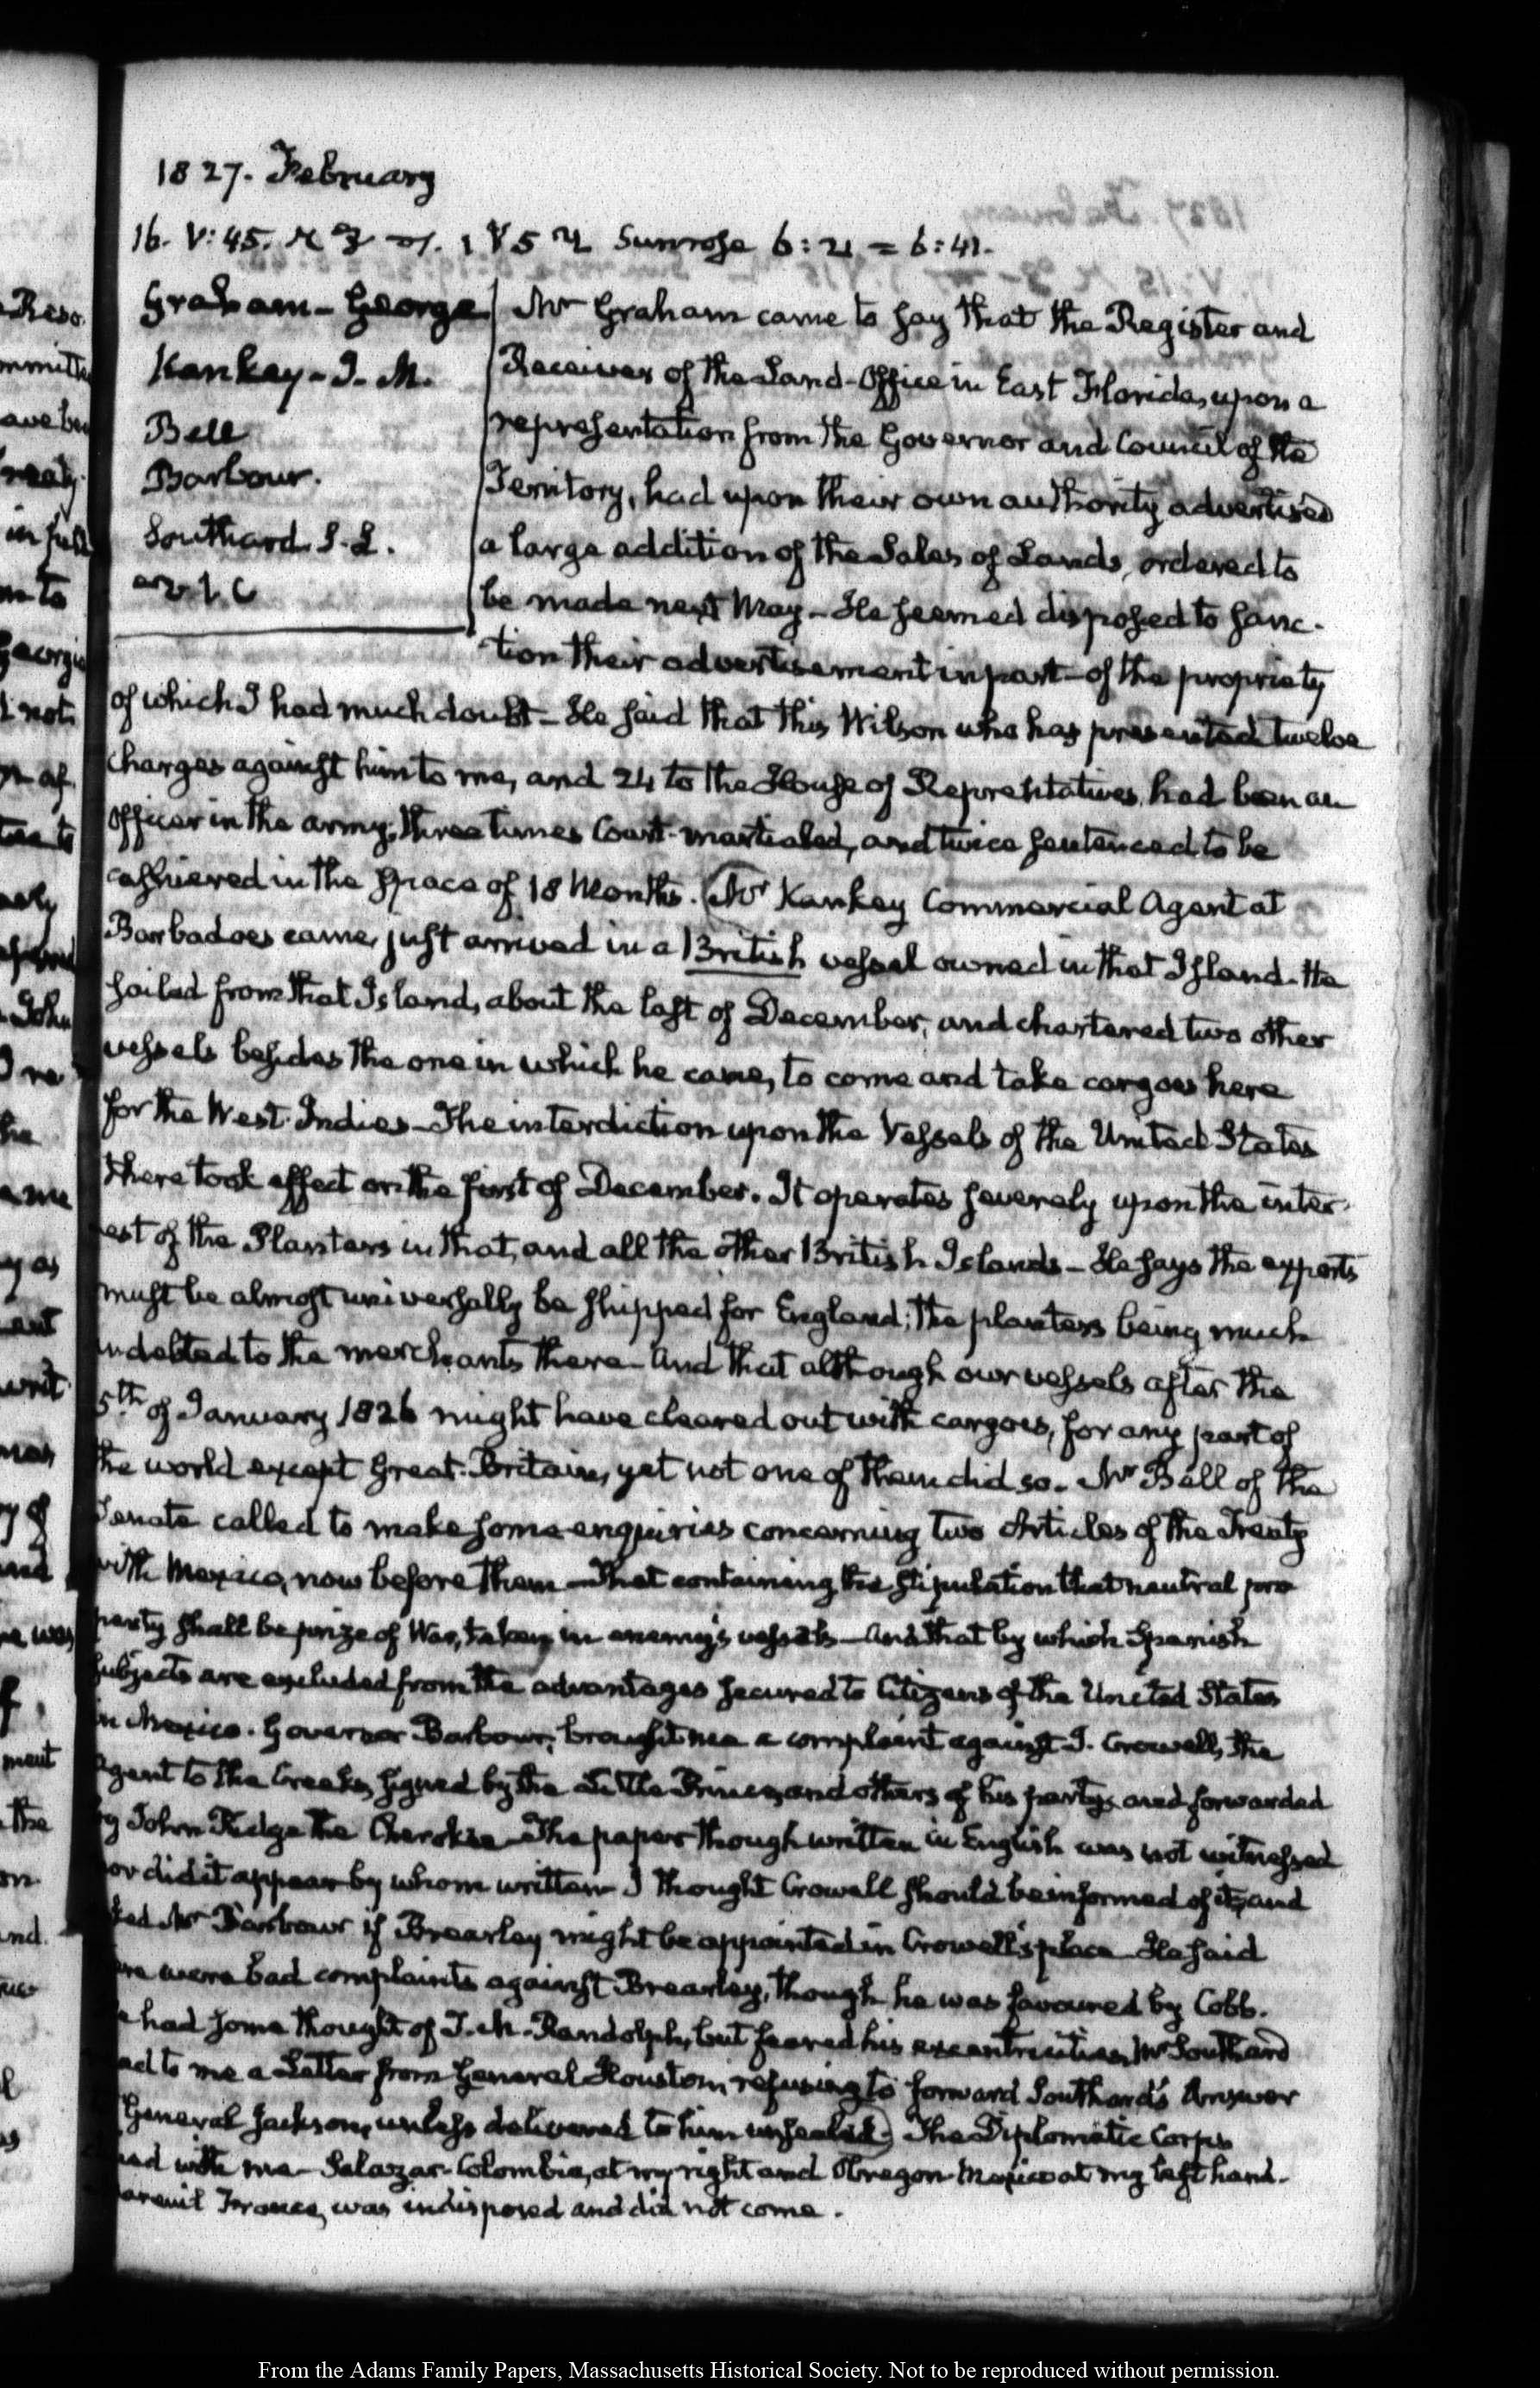 1827. February
16. V:45. Sunrose 6:21 = 6:41.
Graham - George
Kankey - J. M.
Bell
Barbour.
Southard S. L.
Mr Graham came to say that the Register and
Receiver of the Land-Office in East Florida, upon a
representation from the Governor and Council of the
Territory, had upon their own authority advertised
a large addition of the Sales of Lands, ordered to
be made next May - He seemed disposed to sanc-
tion their advertisement in part - of the propriety
of which I had much doubt - He said that this Wilson who has presented twelve
charges against him to me, and 24 to the House of Reprentatives, had been an
Officer in the army; three times Court-martialed, and twice sentenced to be
cashiered in the space of 18 Months. Mr Kankey Commercial Agent at
Barbadoes came, just arrived in a British vessel owned in that Island. He
sailed from that Island, about the last of December, and chartered two other
vessels besides the one in which he came, to come and take cargoes here
for the West-Indies - The interdiction upon the Vessels of the United States
there took effect on the first of December. It operates severely upon the inter-
est of the Planters in that, and all the other British Islands - He says the exports
must be almost universally be shipped for England; the planters being much
indebted to the merchants there - And that although our vessels after the
5th of January 1826 might have cleared out with cargoes, for any part of
the world except Great-Britain, yet not one of them did so. Mr Bell of the
Senate called to make some enquiries concerning two Articles of the Treaty
with Mexico, now before them - That containing the stipulation that neutral pro
perty shall be prize of War, taken in enemy's vessels - And that by which Spanish
subjects are excluded from the advantages secured to Citizens of the United States
in Mexico. Governor Barbour, brought me a complaint against J. Crowell, the
Agent to the Creeks, signed by the Little Prince, and others of his party, and forwarded
by John Ridge the Cherokee - The paper though written in English was not witnessed
nor did it appear by whom written - I thought Crowell should be informed of it; and
asked Mr Barbour if Brearley might be appointed in Crowell's place - He said
there were bad complaints against Brearley, though he was favoured by Cobb.
He had some thought of T. M. Randolph, but feared his excentricities, Mr Southard
read to me a Letter from General Houston, refusing to forward Southard's Answer
General Jackson, unless delivered to him unsealed. The Diplomatic Corps
dined with me - Salazar-Colombia, at my right and Obregon-Mexico at my left hand.
Mareuil France, was indisposed and did not come.
From the Adams Family Papers, Massachusetts Historical Society. Not to be reproduced without permission.